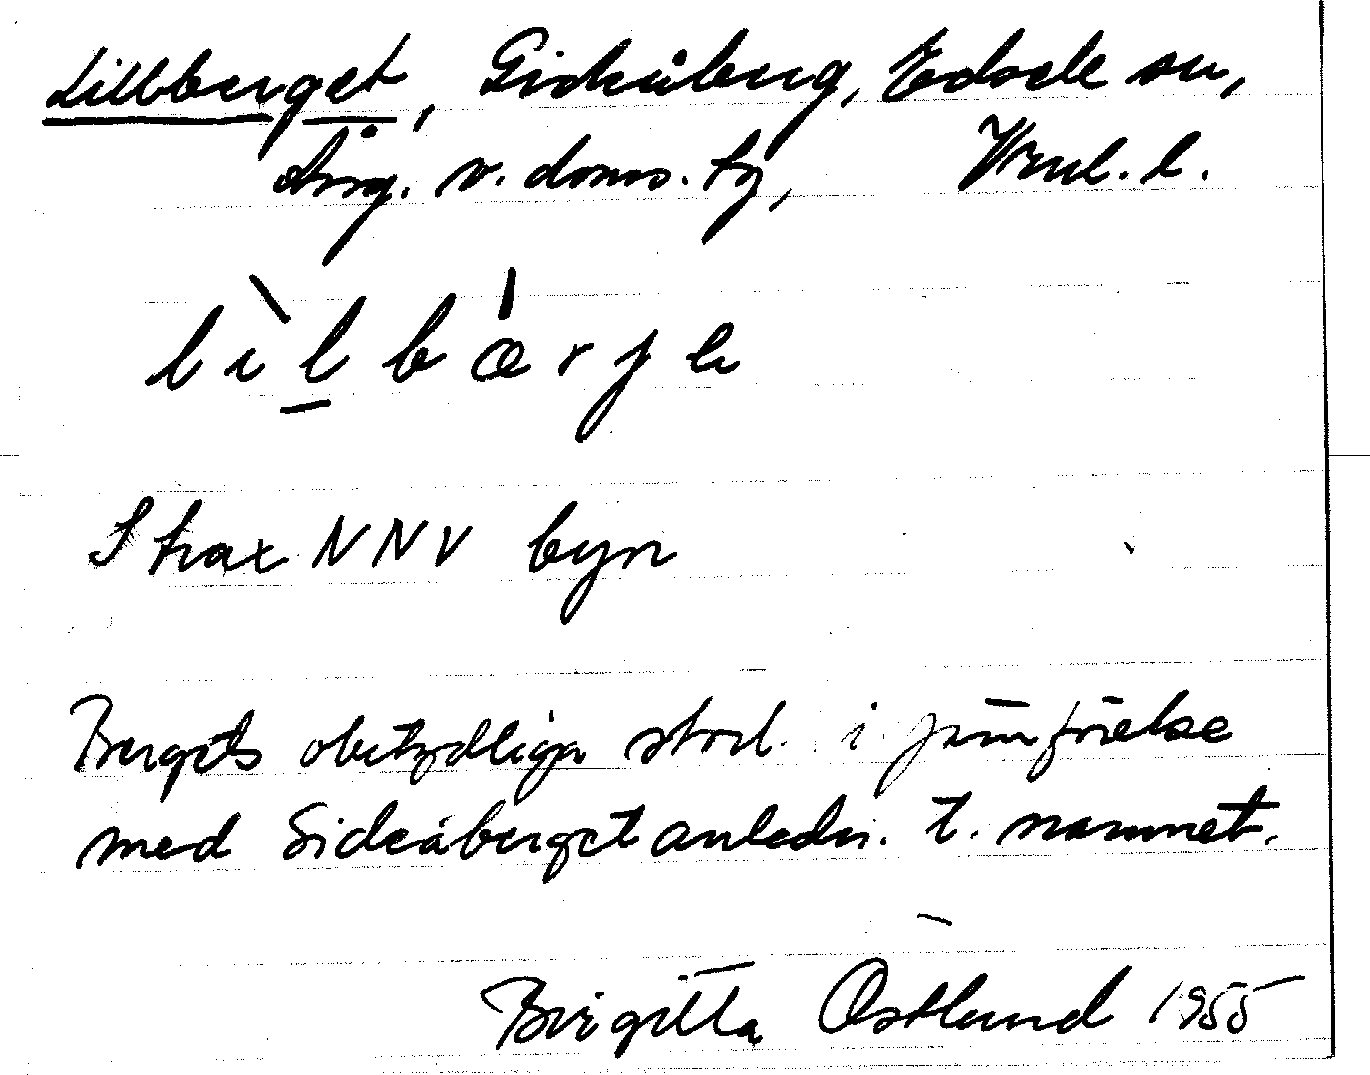 Lillberget, Gideåberg, Edsele sn,
Ång. v. doms. tg, Vrnl. l.
lìl̠bǽrje
Strax NNV byn
Bergets obetydliga storl. i jämförelse
med Gideåberget anledn. t. namnet.
Birgitta Östlund 1955